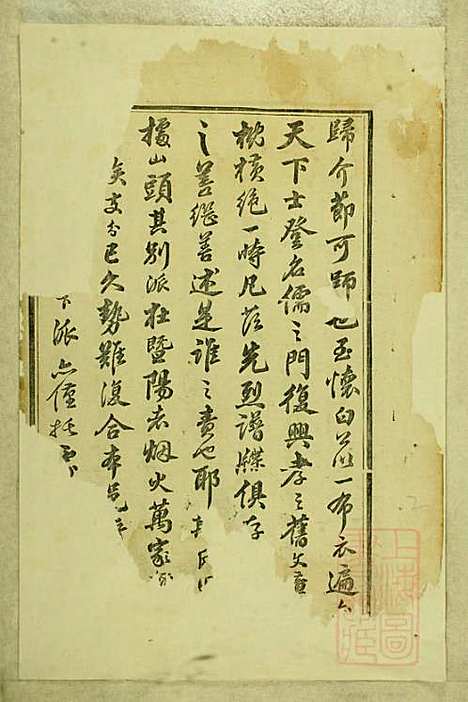 歸介節可師也至懷白公一布衣遍交
天下士登名儒之門復興孝之舊文
枕橫絕一時凡茲先烈譜牒俱存
之善繼善述是誰之責也耶
據山頭其別派在暨陽者烟火萬家
矣支分已久勢難復合本
下派亦僅
上海圖